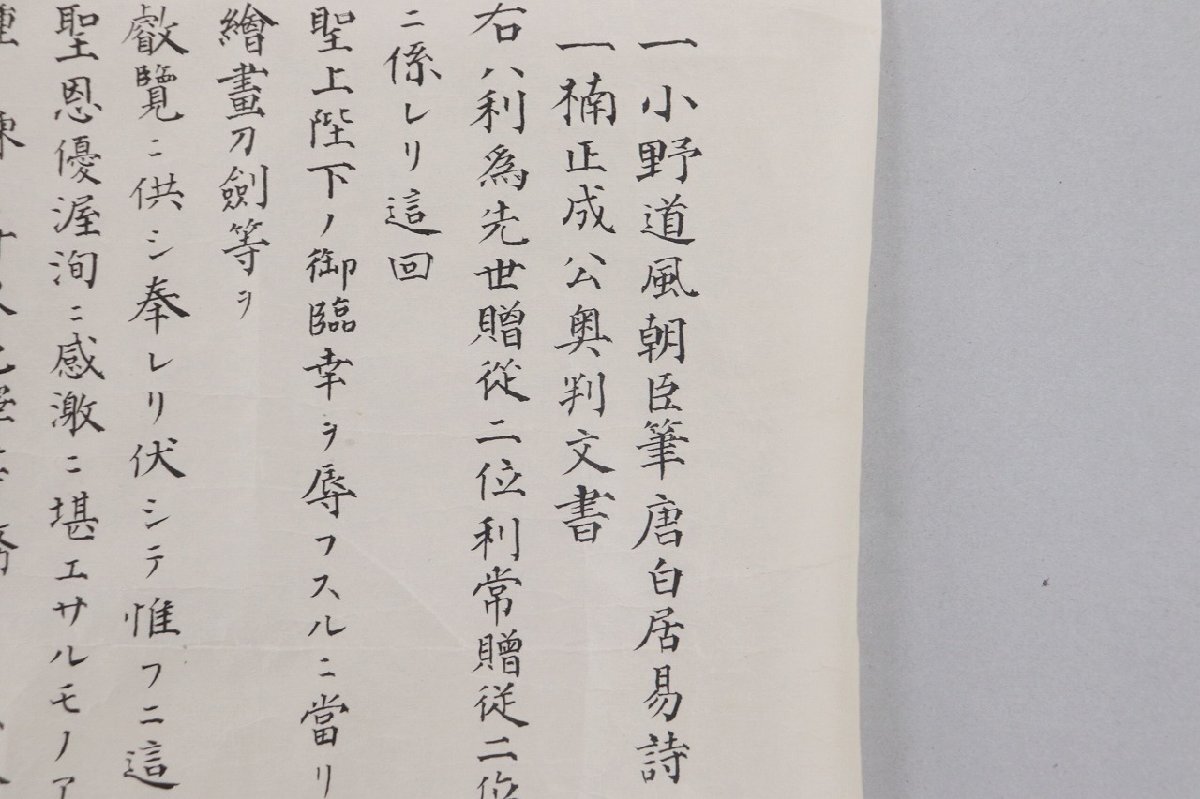 一小野道風朝臣筆唐白居易詩
一楠正成公奥判文書
右ハ利為先世贈從二位利常贈從二位
ニ係レリ這回
聖上陛下ノ御臨幸ヲ辱フスルニ當リ
繪畫刀劍等ヲ
叡覽ニ供シ奉レリ伏シテ惟フニ這
聖恩優渥洵ニ感激ニ堪エサルモノア